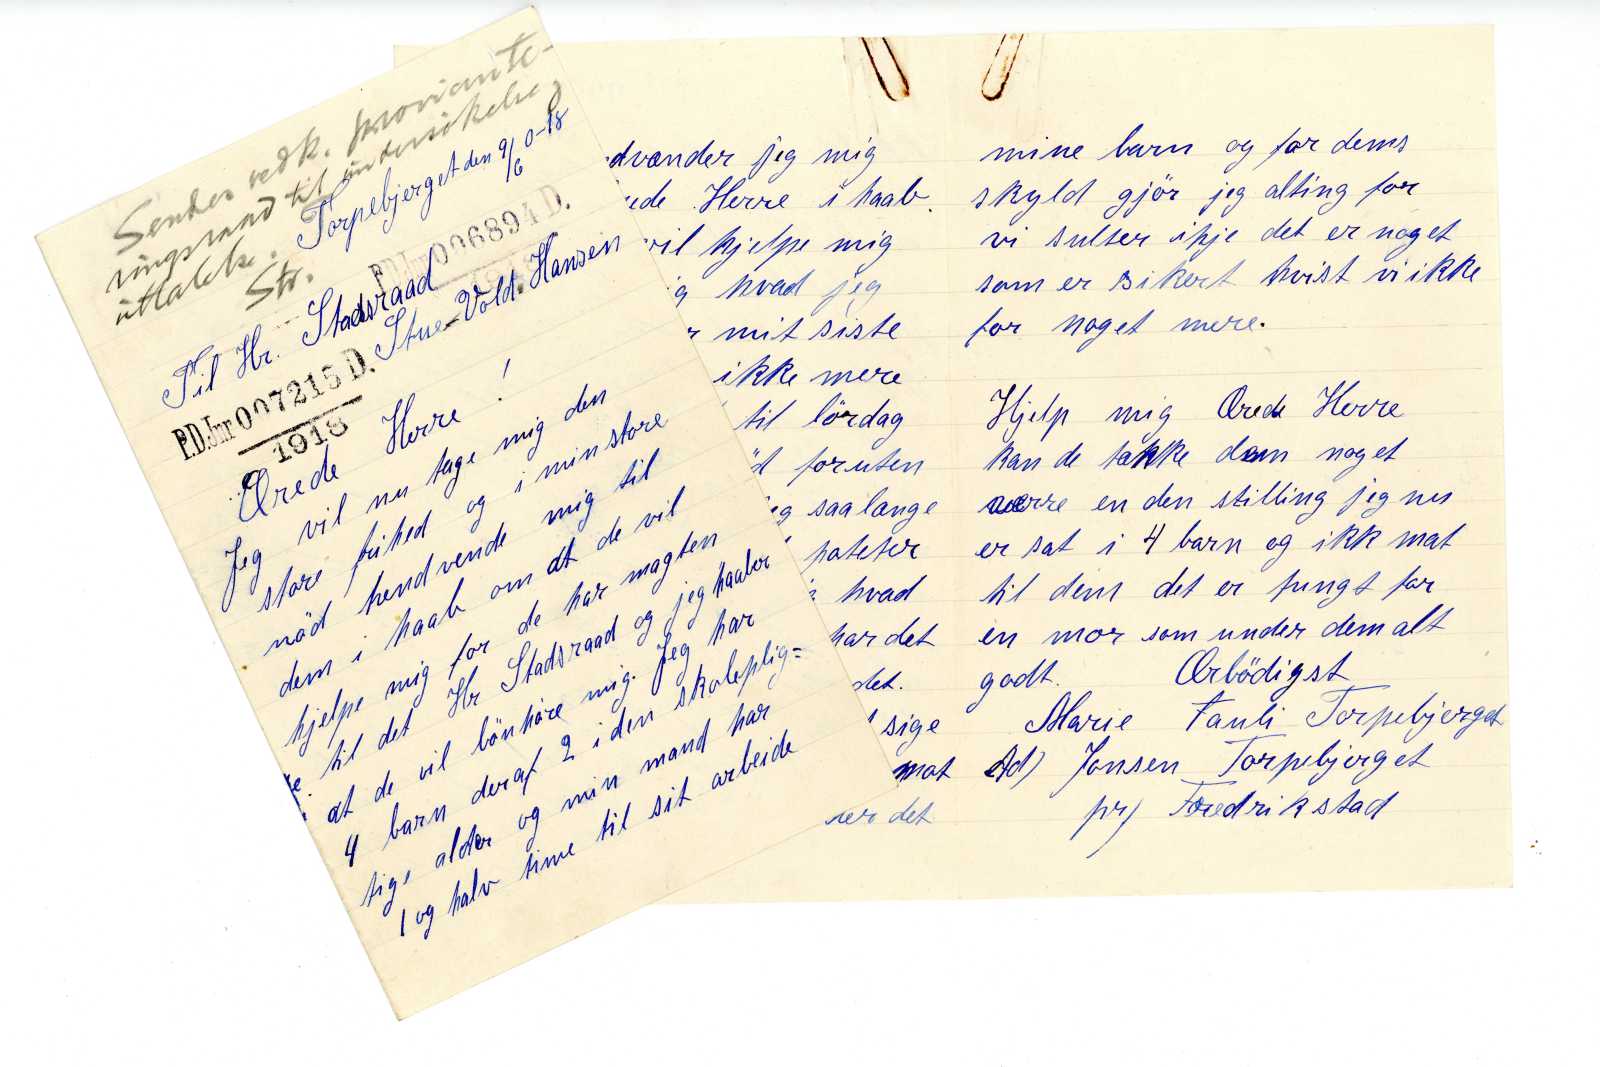 Sendes vedk. proviante-
ringsraad til undersøkelse og
uttalelse.
Str.
Torpebjerget den 9/6 0-18
P.D.Jnr 006894 D.
Til Hr. Stadsraad
Stue-Vold. Hansen
P.D.Jnr 007215 D.
1918
Ærede Herre !
Jeg vil nu tage mig den
store frihed og i min store
nöd hendvende mig til
dem i haab om at de vil
hjelpe mig for de har magten
til det Hr Stadsraad og jeg haaber
at de vil bönhöre mig. Jeg har
4 barn deraf 2 i den skoleplig=
tige alder og min mand har
1 og halv time til sit arbeide
dvænder jeg mig
ede Herre i haab.
vil hjelpe mig
g hvad jeg
r mit siste
ikke mere
til lördag
d foruten
eg saalænge
poteter
hvad
har det
det.
sige
mat
er det
mine barn og for dems
skyld gjör jeg alting for
vi sulter ikje det er noget
som er sikert hvist vi ikke
for noget mere.
Hjelp mig Ærede Herre
kan de tænke dem noget
værre en den stilling jeg nu
er sat i 4 barn og ikk mat
til dem det er tungt for
en mor som under dem alt
godt. Ærbödigst
Marie Fauli Torpebjerget
Ad) Jonsen Torpebjerget
pr) Fredrikstad